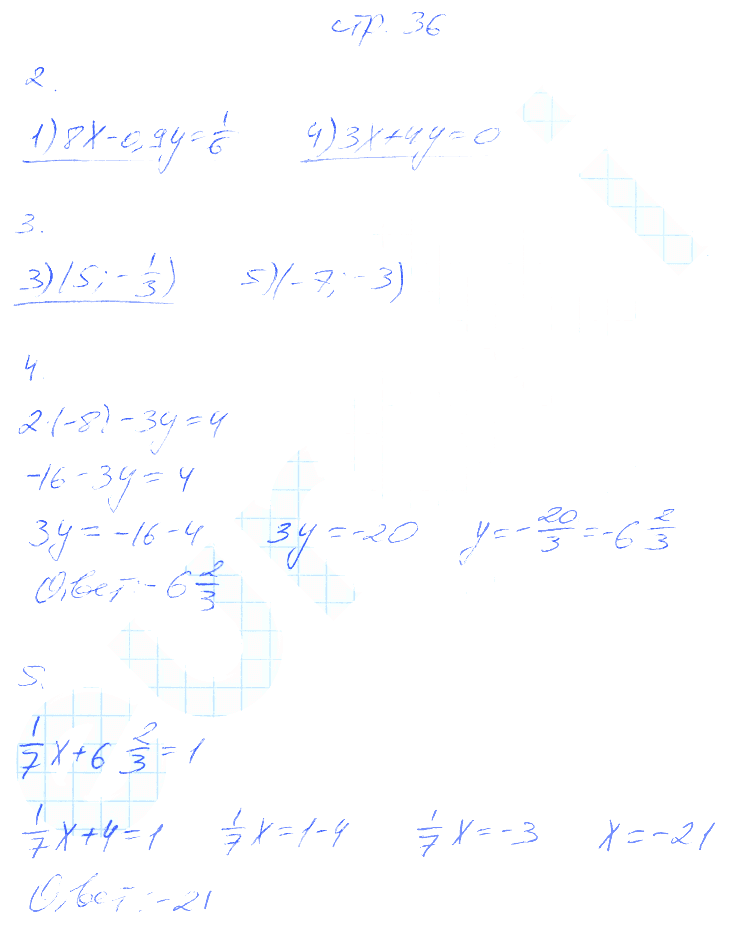 стр. 36
2.
1) 8x-0,9y=1/6 4) 3x+4y=0
3.
3) (5; -1/3) 5) (-7; -3)
4.
2·(-8) -3y=4
-16-3y=4
3y=-16-4 3y=-20 y=-20/3=-6 2/3
Ответ: -6 2/3
5.
1/7 x+6 2/3=1
1/7 x+4=1 1/7 x=1-4 1/7 x=-3 x=-21
Ответ: -21